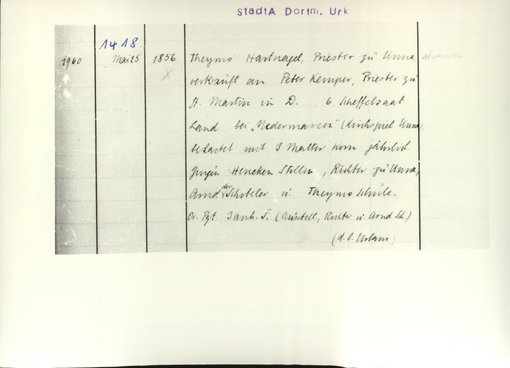 StadtA Dortm, Urk
1418
1960 Mai 5 1856 Theymo Hartnagel, Priester zu Unna,
verkauft an Peter Kemper, Priester zu
St. Martin in D. 6 Scheffelsaat
Land bei „Nedermassen" (Kirchspiel Unna)
belastet mit 3 Malter Korn jährlich
Zeugen Hencken Stellen, Richter zu Unna,
Arnd Schoteler u. Theymo
Or. Pgt. 3 anh. S. (Richter u. Arnd Sch.)
(d. d. Urbani)